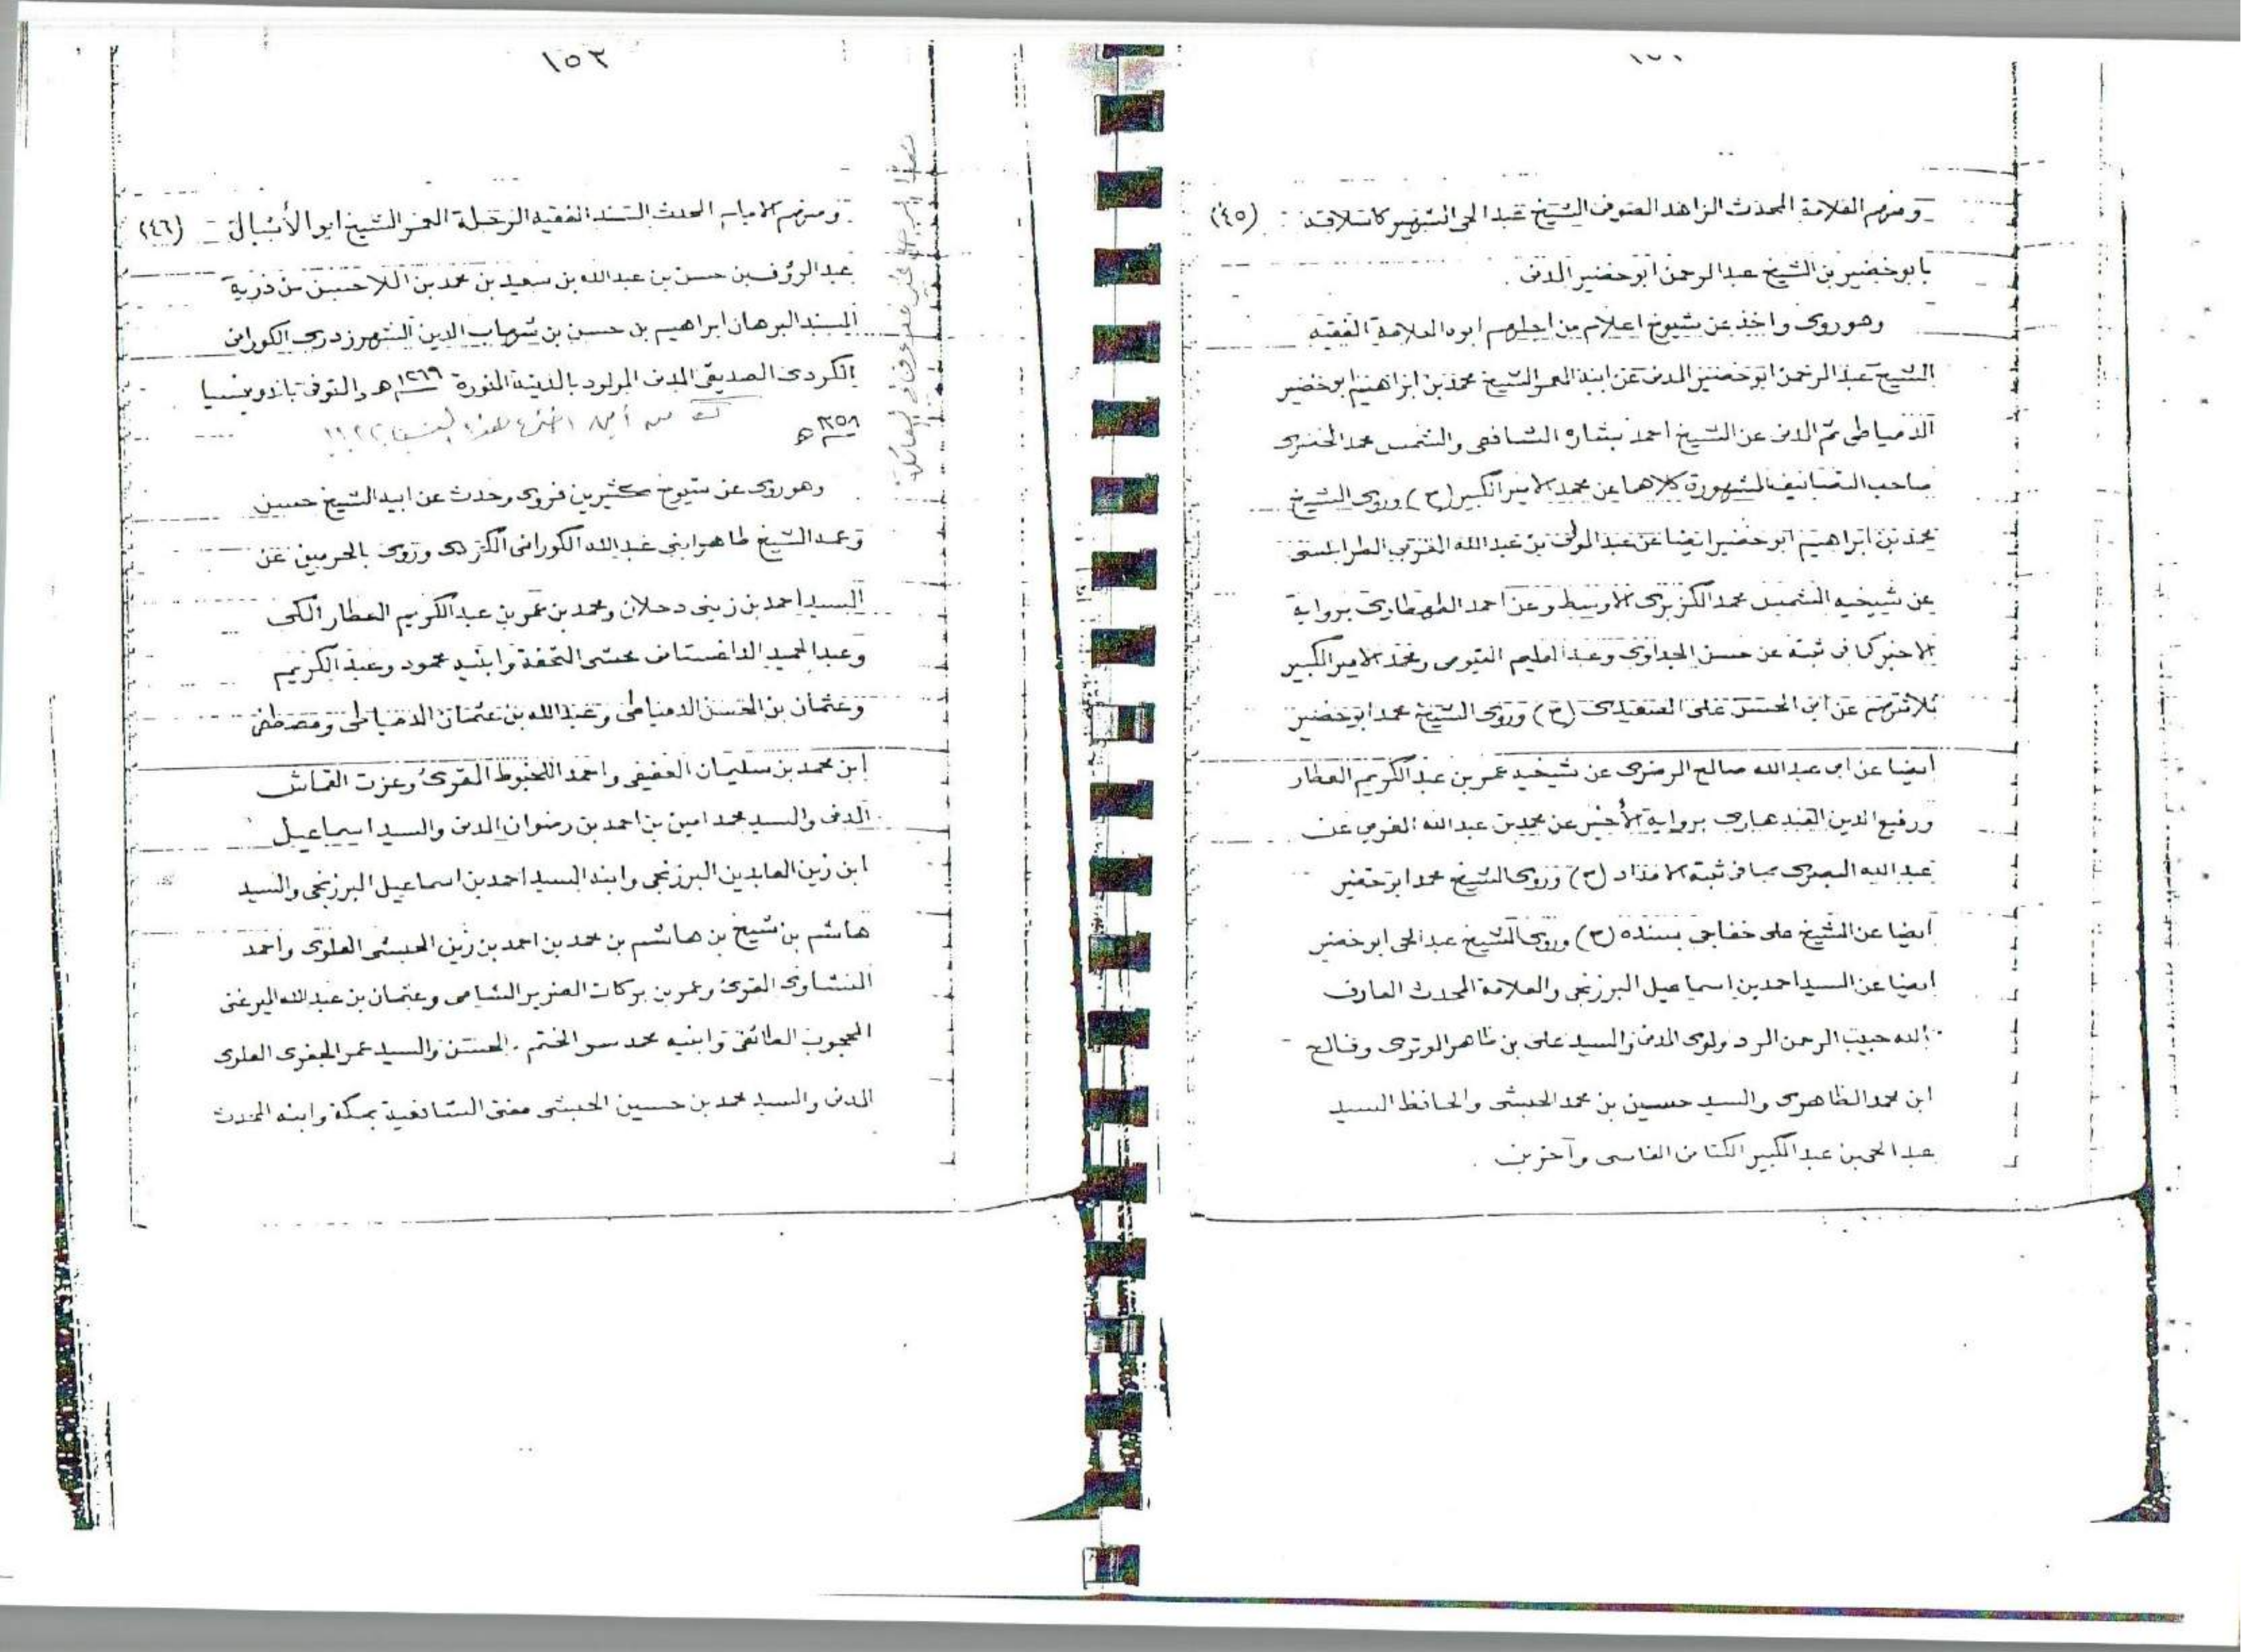 ومنهم العلامة المحدث الزاهد الصوفى الشيخ عبد الحى الشهير كاسلافه (٤٥)
بابو خضير بن الشيخ عبد الرحمن ابو خضير المدنى .
وهو روى واخذ عن شيوخ اعلام من اجلهم ابوه العلامة الفقيه
الشيخ عبد الرحمن ابو خضير المدنى عن ابيه المعمر الشيخ محمد بن ابراهيم ابو خضير
الدمياطى ثم المدنى عن الشيخ احمد بشاره الشافعى والشمس محمد الخضرى
صاحب التصانيف المشهورة كلاهما عن محمد الامير الكبير (ح) وروى الشيخ
محمد بن ابراهيم ابو خضير ايضا عن عبد المولى بن عبد الله المغربى الطرابلسى
عن شيخيه الشمس محمد الكزبرى الاوسط وعن احمد الطهطاوى برواية
الاخير كما فى ثبته عن حسن الجداوى وعبد العليم الفيومى ومحمد الامير الكبير
ثلاثتهم عن ابى الحسن على الصعيدى (ح) وروى الشيخ محمد ابو خضير
ايضا عن ابى عبد الله صالح الرضوى عن شيخيه عمر بن عبد الكريم العطار
ورفيع الدين القندهارى برواية الأخير عن محمد بن عبد الله المغربى عن
عبد الله البصرى بما فى ثبته الامداد (ح) وروى الشيخ محمد ابو خضير
ايضا عن الشيخ على خفاجى بسنده (ح) وروى الشيخ عبد الحى ابو خضير
ايضا عن السيد احمد بن اسماعيل البرزنجى والعلامة المحدث العارف
بالله حبيب الرحمن الردولوى المدنى والسيد على بن ظاهر الوترى وفالح
ابن محمد الظاهرى والسيد حسين بن محمد الحبشى والحافظ السيد
عبد الحى بن عبد الكبير الكتانى الفاسى وآخرين .
١٥٣
ومنهم الامام المحدث المسند الفقيه الرحلة المعمر الشيخ ابو الأشبال (٤٦)
عبد الرؤف بن حسن بن عبد الله بن سعيد بن محمد بن اللاحسن من ذرية
المسند البرهان ابراهيم بن حسن بن شهاب الدين الشهرزدرى الكورانى
الكردى الصديقى المدنى المولود بالمدينة المنورة ١٢٦٩ هـ والمتوفى بالاندونيسيا
١٣٥٨ هـ
وهو روى عن شيوخ كثيرين فروى وحدث عن ابيه الشيخ حسن
وعمه الشيخ طاهر ابنى عبد الله الكورانى الكردى وروى بالحرمين عن
السيد احمد بن زينى دحلان ومحمد بن عمر بن عبد الكريم العطار المكى
وعبد الحميد الداغستانى محشى التحفة وابنيه محمود وعبد الكريم
وعثمان بن الحسن الدمياطى وعبد الله بن عثمان الدمياطى ومصطفى
ابن محمد بن سليمان العفيفى واحمد اللخبوط المقرئ وعزت القماش
المدنى والسيد محمد امين بن احمد بن رضوان المدنى والسيد اسماعيل
ابن زين العابدين البرزنجى وابنه السيد احمد بن اسماعيل البرزنجى والسيد
هاشم بن شيخ بن هاشم بن محمد بن احمد بن زين الحبشى العلوى واحمد
النشاوى المقرئ وعمر بن بركات الضرير الشامى وعثمان بن عبد الله الميرغنى
المحجوب الطائفى وابنيه محمد سر الختم . الحسن والسيد عمر الجفرى العلوى
المدنى والسيد محمد بن حسين الحبشى مفتى الشافعية بمكة وابنه المحدث